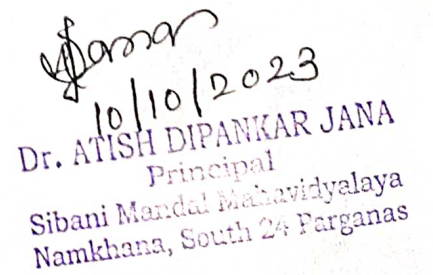 10/10/2023
Dr. ATISH DIPANKAR JANA
Principal
Sibani Mandal Mahavidyalaya
Namkhana, South 24 Parganas